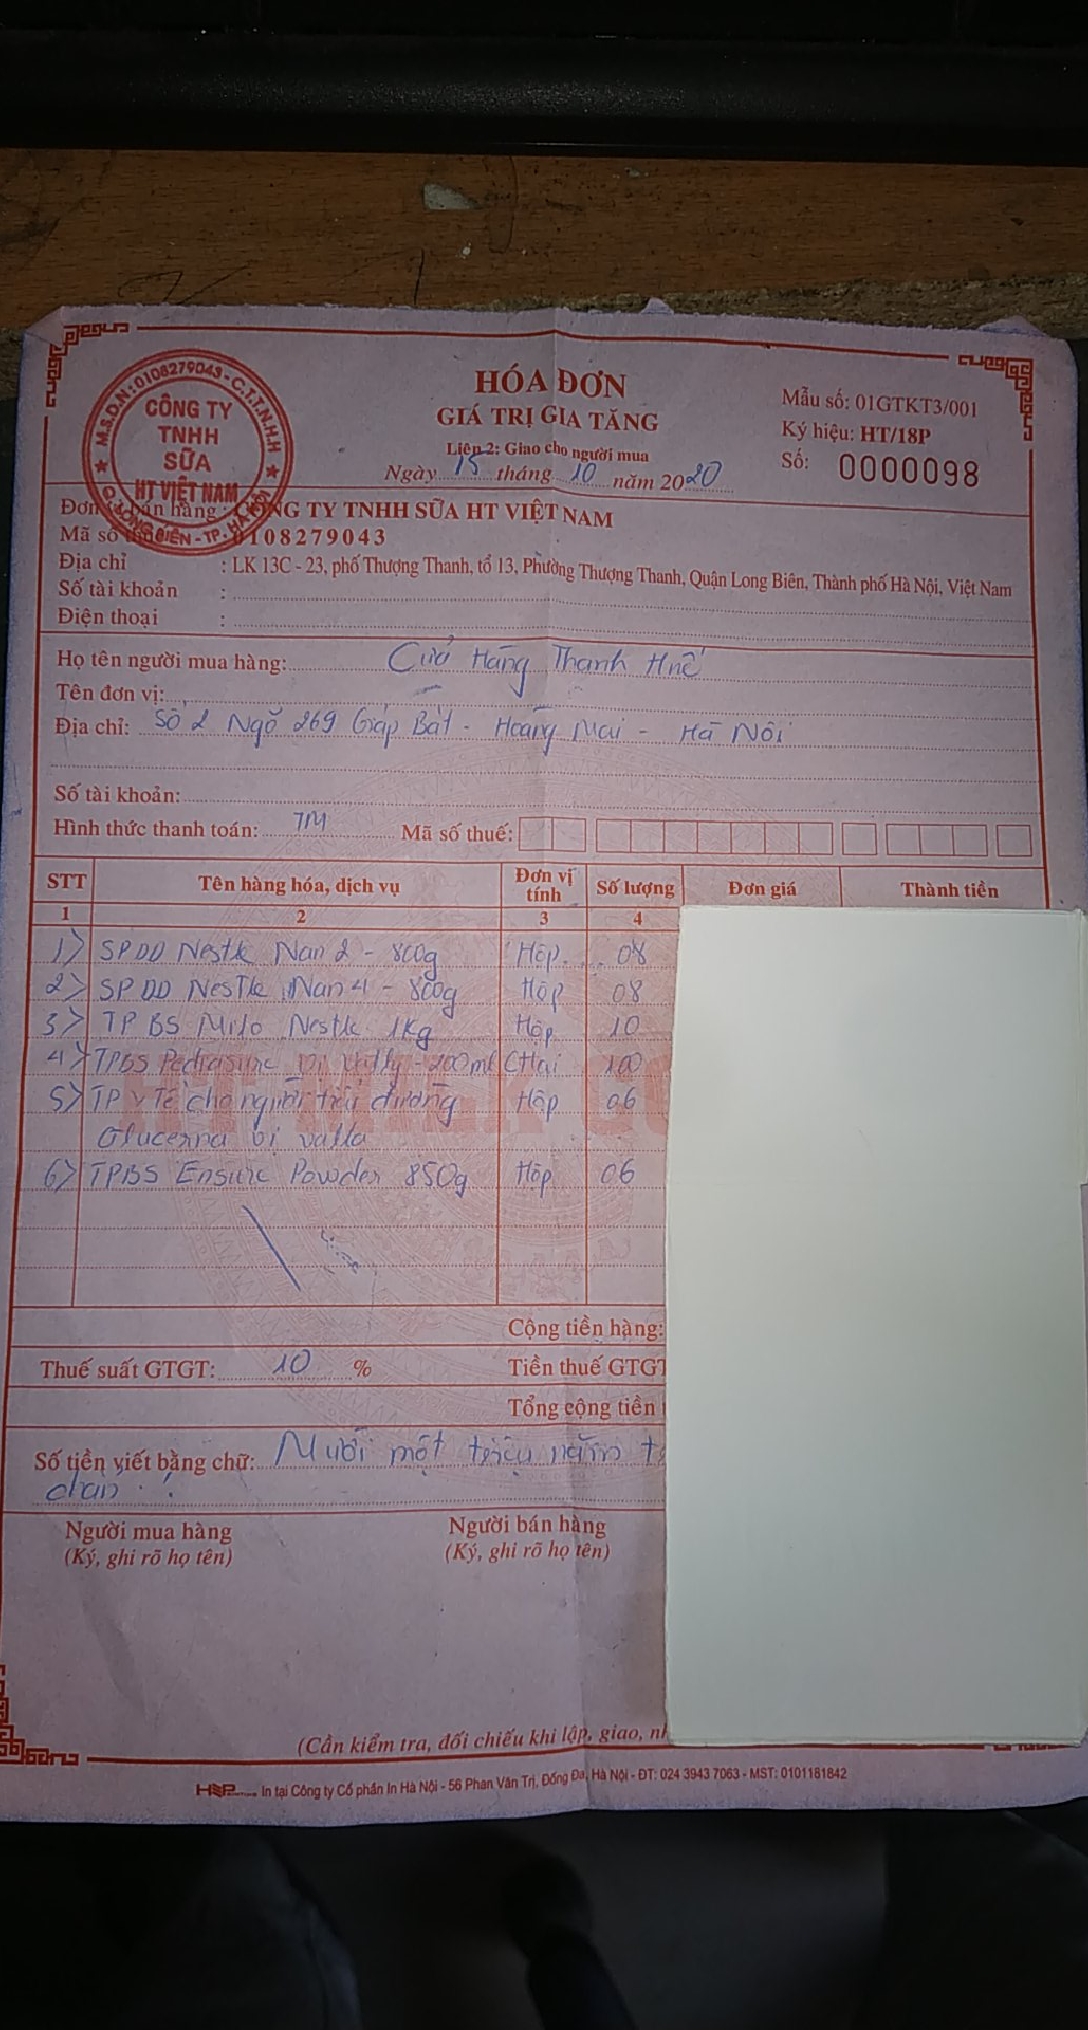 M.S.D.N: 0108279043 - C.T.T.N.H.H
CÔNG TY
TNHH
SỮA
HT VIỆT NAM
HÓA ĐƠN
GIÁ TRỊ GIA TĂNG
Liên 2: Giao cho người mua
Ngày 15 tháng 10 năm 2020
Mẫu số: 01GTKT3/001
Ký hiệu: HT/18P
Số: 0000098
Đơn bán hàng : CÔNG TY TNHH SỮA HT VIỆT NAM
Mã số 0108279043
Địa chỉ : LK 13C - 23, phố Thượng Thanh, tổ 13, Phường Thượng Thanh, Quận Long Biên, Thành phố Hà Nội, Việt Nam
Số tài khoản :
Điện thoại :
Họ tên người mua hàng: Cửa Hàng Thanh
Tên đơn vị:
Địa chỉ: Số 2 Ngõ 269 Giáp Bát - Hoàng Mai - Hà Nội
Số tài khoản:
Hình thức thanh toán: TM Mã số thuế:
STT Tên hàng hóa, dịch vụ Đơn vị tính Số lượng Đơn giá Thành tiền
1 2 3 4
1> SPDD Nestle Nan 2 - 800g Hộp 08
2> SPDD Nestle Nan 4 - 800g Hộp 08
3> TPBS Milo Nestle 1Kg Hộp 10
4> TPBS Pediasure - 200ml Chai 100
5> TP y Tế cho người tiểu đường Hộp 06
Glucerna
6> TPBS Ensure Powder 850g Hộp 06
Cộng tiền hàng:
Thuế suất GTGT: 10 % Tiền thuế GTGT
Tổng cộng tiền
Số tiền viết bằng chữ: Mười một triệu năm
chẵn
Người mua hàng
(Ký, ghi rõ họ tên)
Người bán hàng
(Ký, ghi rõ họ tên)
(Cần kiểm tra, đối chiếu khi lập, giao,
In tại Công ty Cổ phần In Hà Nội - 56 Phan Văn Trị, Đống Đa, Hà Nội - ĐT: 024 3943 7063 - MST: 0101181842